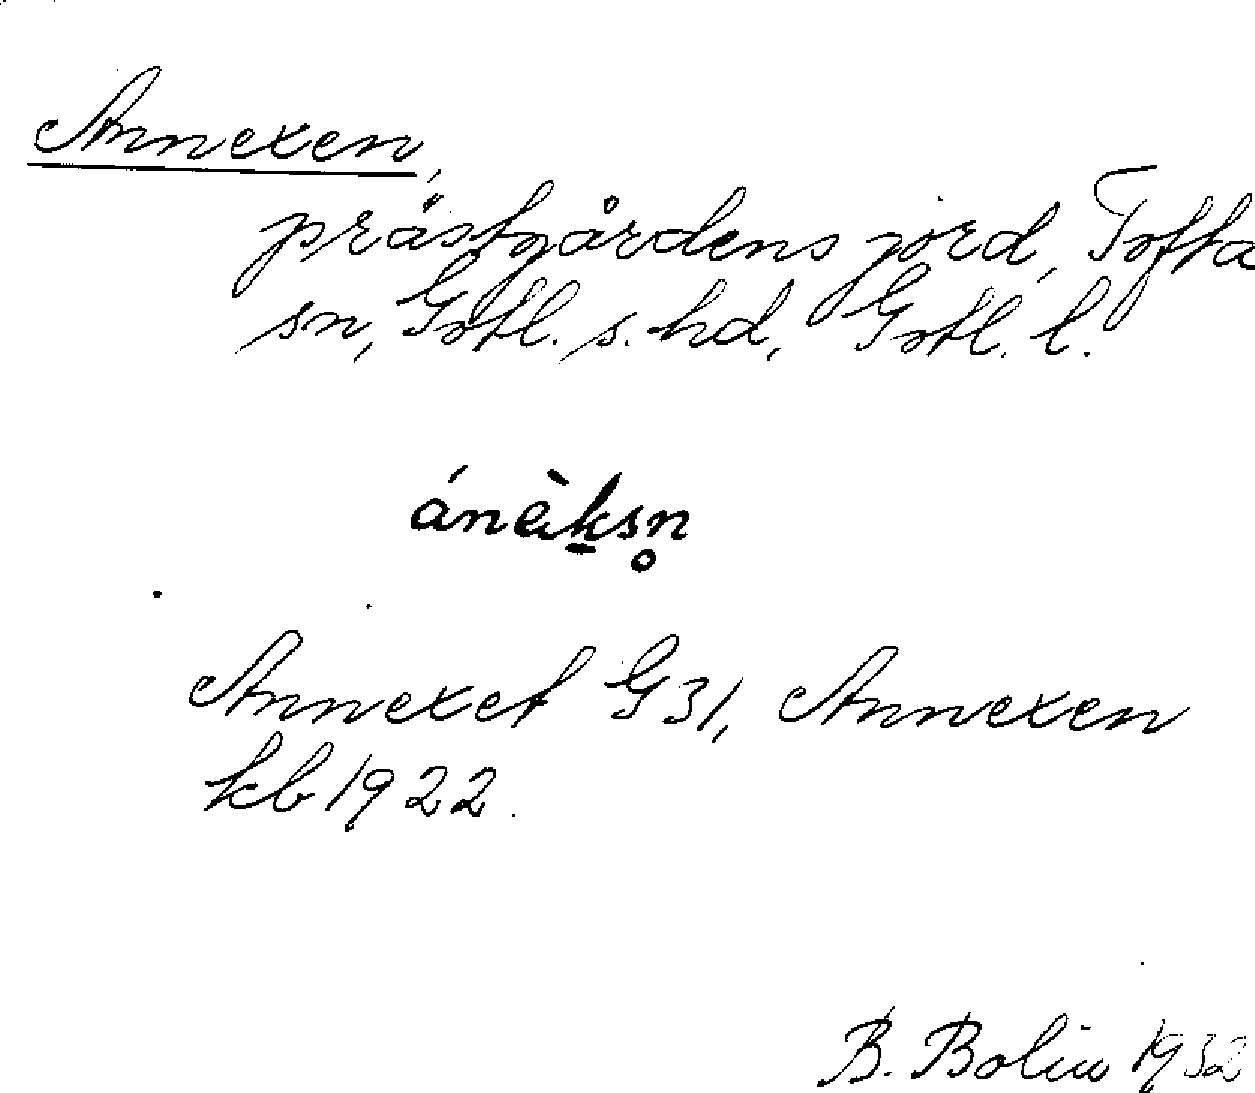 Annexen,
prästgårdens jord, Tofta
sn, Gotl. s. hd, Gotl. l.
ánèksn̥
Annexet G 31, Annexen
kb 1922.
B. Bolin 1932